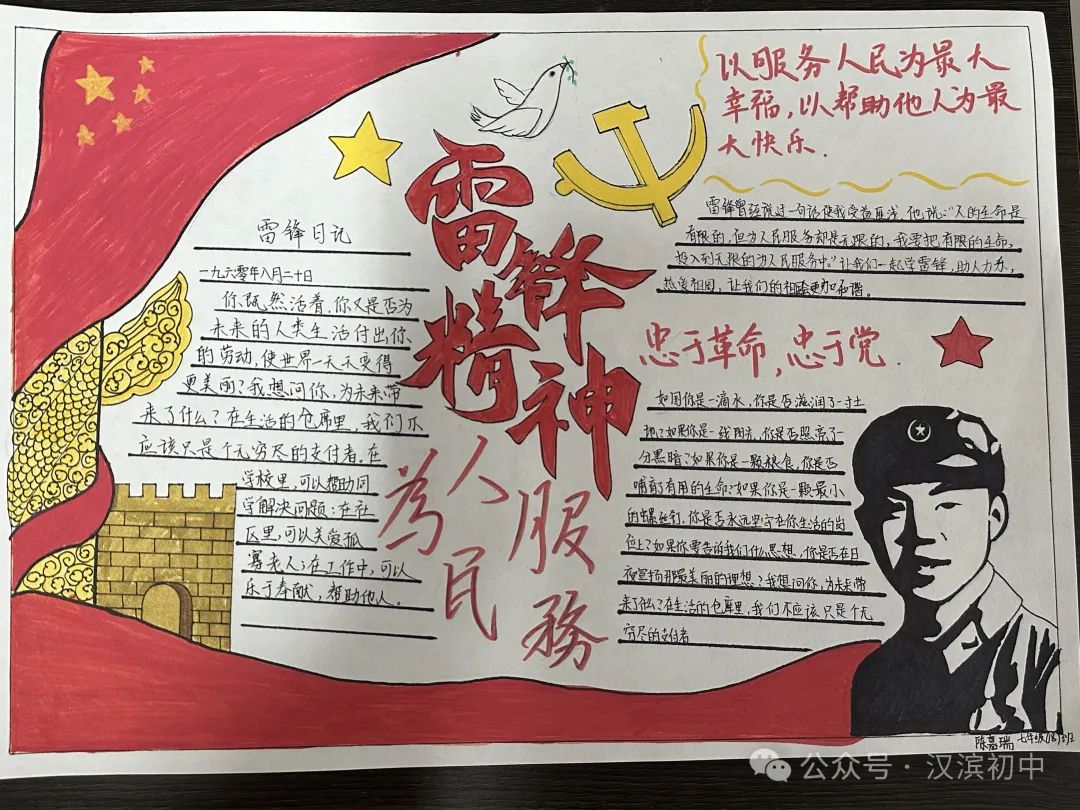 雷锋精神
为人民服務
以服务人民为最大
幸福，以帮助他人为最
大快乐.
雷锋日记
一九六零年八月二十日
你,既然活着,你又是否为
未来的人类生活付出你
的劳动,使世界一天天变得
更美丽?我想问你,为未来带
来了什么?在生活的仓库里,我们不
应该只是个无穷尽的支付者.在
学校里,可以帮助同
学解决问题:在社
区里,可以关爱孤
寡老人;在工作中,可以
乐于奉献,帮助他人。
雷锋曾经说过一句话使我受益匪浅.他说:"人的生命是
有限的,但为人民服务却是无限的,我要把有限的生命,
投入到无限的为人民服务中."让我们一起学雷锋,助人为乐,
热爱祖国,让我们的社会更加和谐。
忠于革命,忠于党.
如果你是一滴水,你是否滋润了一寸土
地?如果你是一线阳光,你是否照亮了一
分黑暗?如果你是一颗粮食,你是否
哺育有用的生命?如果你是一颗最小
的螺丝钉,你是否永远坚守在你生活的岗
位上?如果你要告诉我们什么思想,你是否在日
夜宣扬那最美丽的理想?我想问你,为未来带
来了什么?在生活的仓库里,我们不应该只是个无
穷尽的支付者
陈嘉瑞 七年级
公众号·汉滨初中